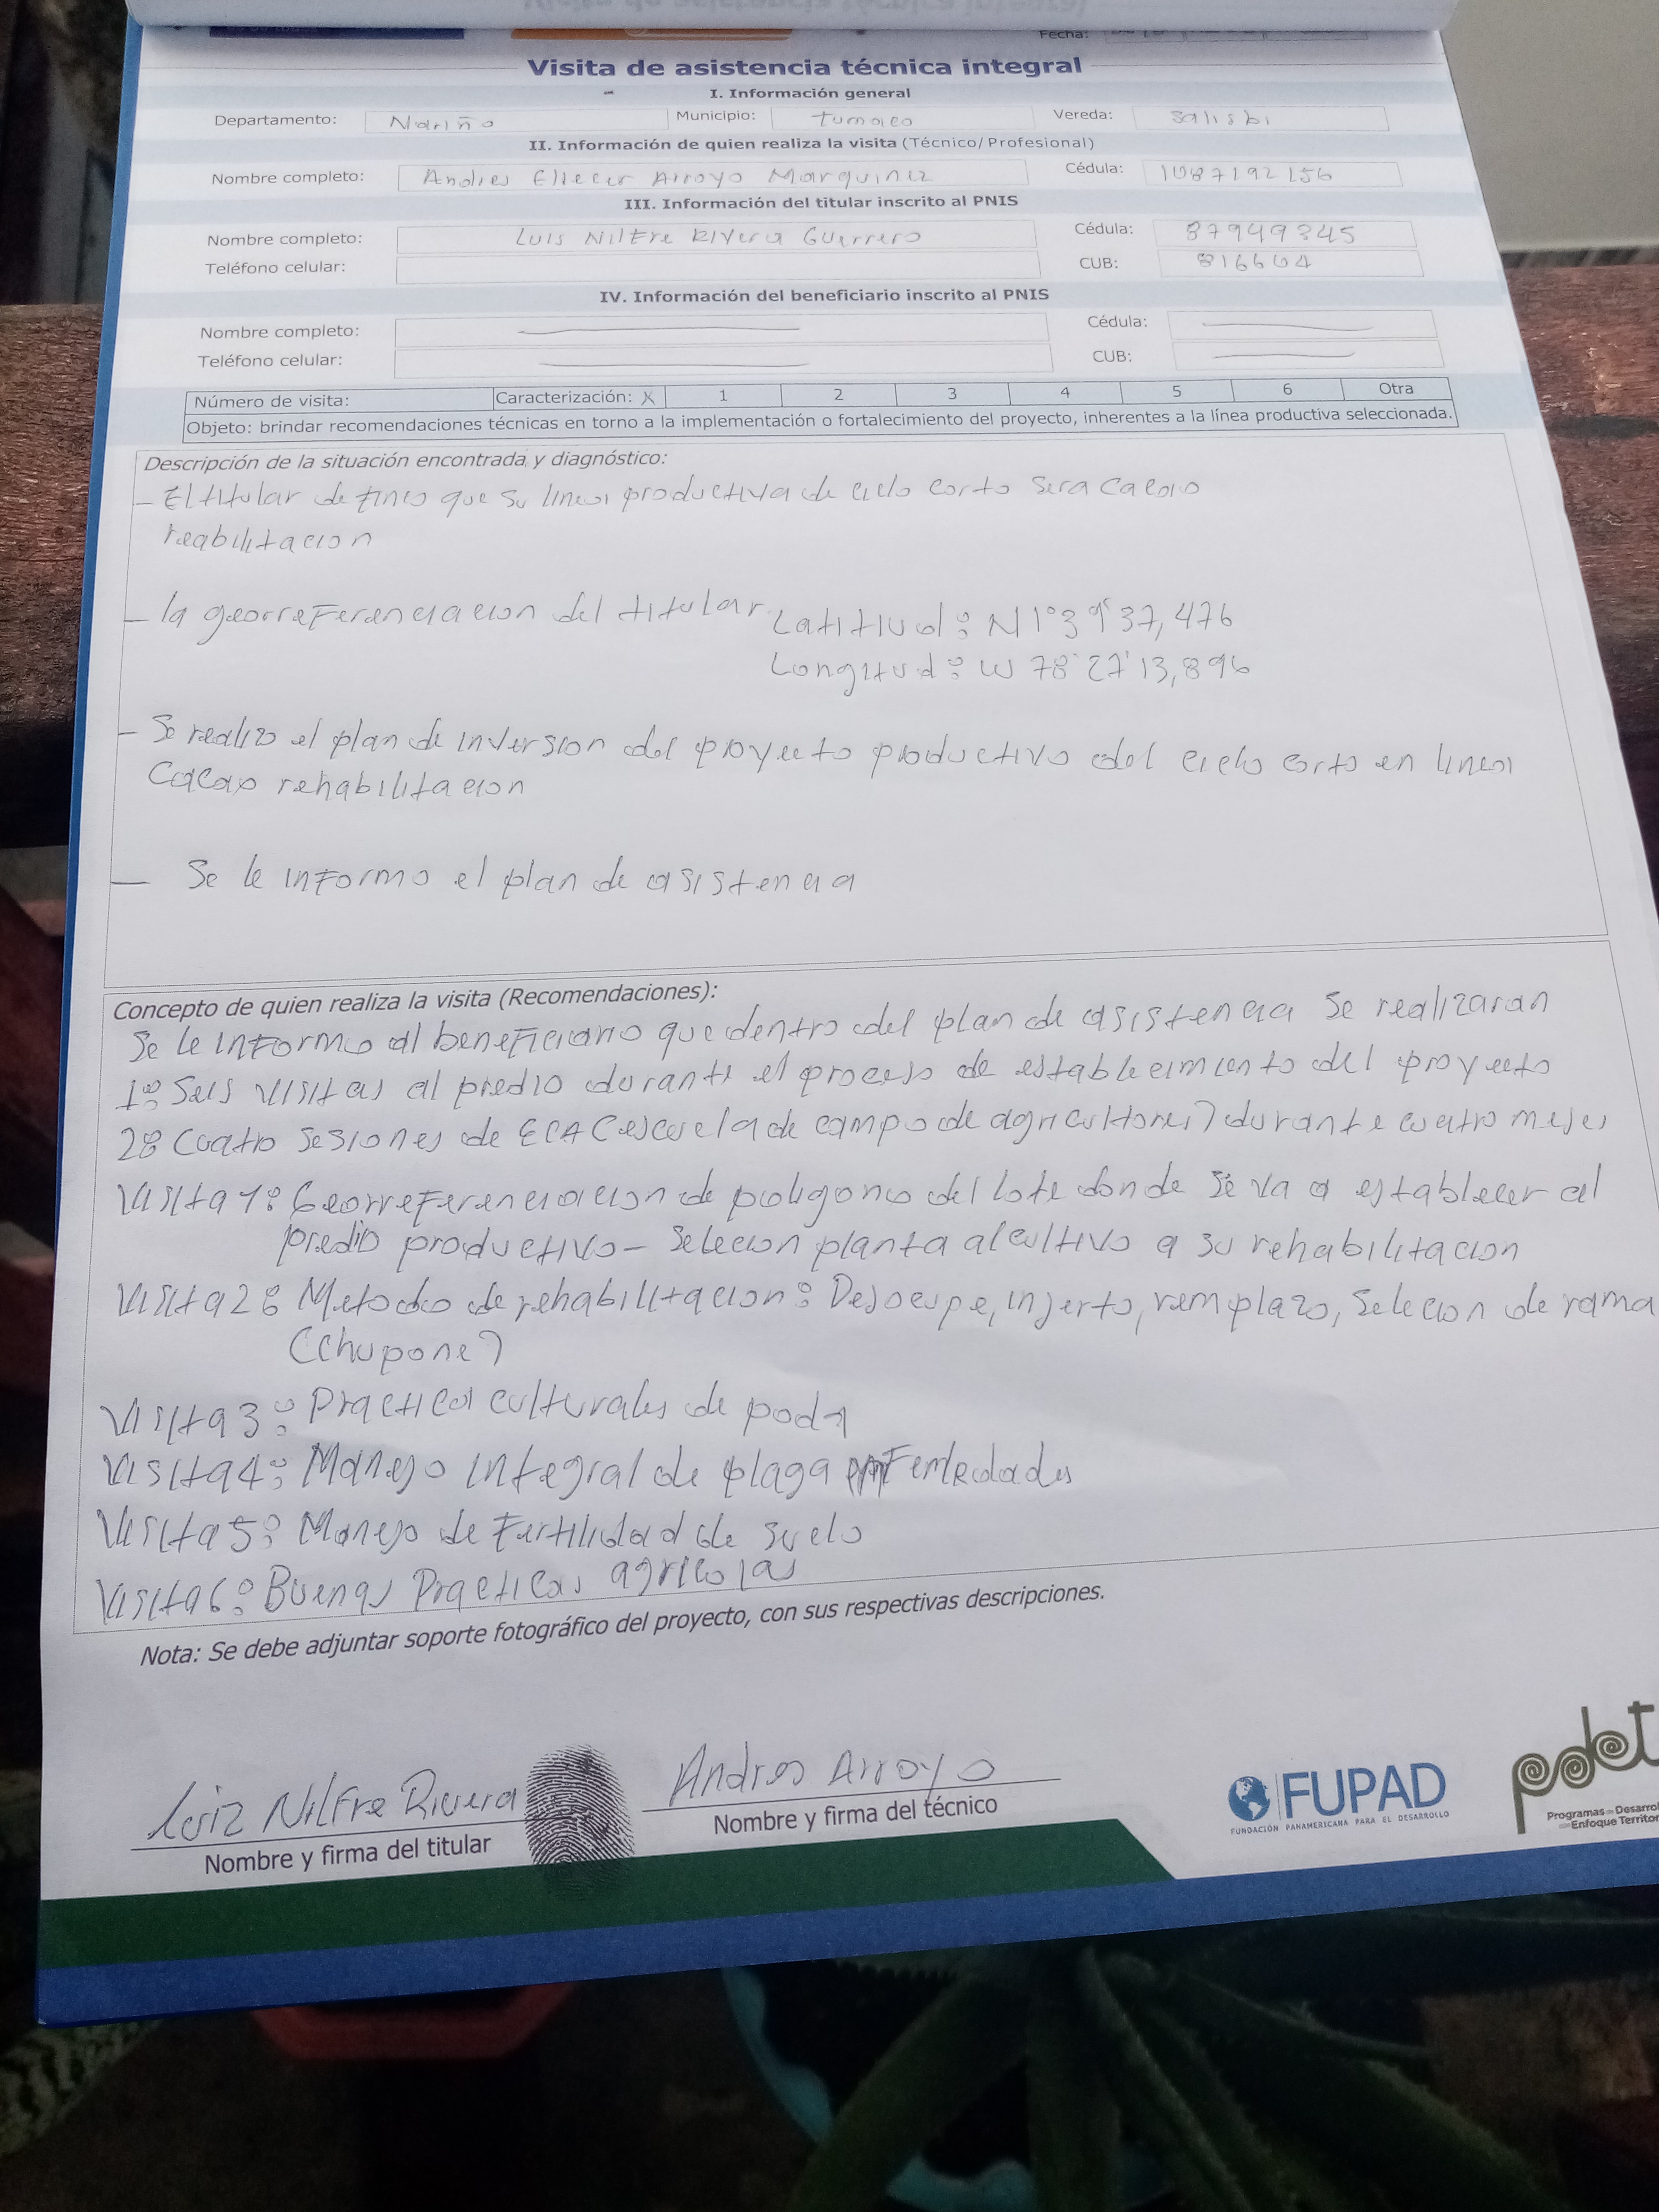 Fecha:
Visita de asistencia técnica integral
I. Información general
Departamento: Nariño Municipio: tumaco Vereda: salisbi
II. Información de quien realiza la visita (Técnico/Profesional)
Nombre completo: Andres Eliecer Arroyo Marquinez Cédula: 1087192156
III. Información del titular inscrito al PNIS
Nombre completo: Luis Nilfre Rivera Guerrero Cédula: 87949845
Teléfono celular: CUB: 816604
IV. Información del beneficiario inscrito al PNIS
Nombre completo: Cédula:
Teléfono celular: CUB:
Número de visita: Caracterización: X 1 2 3 4 5 6 Otra
Objeto: brindar recomendaciones técnicas en torno a la implementación o fortalecimiento del proyecto, inherentes a la línea productiva seleccionada.
Descripción de la situación encontrada y diagnóstico:
- El titular de fino que su linea productiva de ciclo corto sera cacao
reabilitacion
- la georreferenciacion del titular Latitiud: N 1°3 9' 37,476
Longitud: W 78°27'13,896
- Se realizo el plan de inversion del proyecto productivo del ciclo corto en linea
Cacao rehabilitacion
- Se le informo el plan de asistencia
Concepto de quien realiza la visita (Recomendaciones):
Se le informo al beneficiario que dentro del plan de asistencia Se realizaran
1: Seis visitas al predio durante el proceso de establecimiento del proyecto
2: Cuatro Sesiones de ECA (escuela de campo de agricultores) durante cuatro meses
Visita 1: Georreferenciacion de poligono del lote donde se va a establecer el
predio productivo - Selecion planta al cultivo a su rehabilitacion
Visita 2: Metodo de rehabilitacion: Descupe, injerto, remplazo, Selecion de rama
(chupone)
Visita 3: Practica culturales de poda
Visita 4: Manejo integral de plaga enfemedades
Visita 5: Manejo de Fertilidad de suelo
Visita 6: Buenas Practicas agricolas
Nota: Se debe adjuntar soporte fotográfico del proyecto, con sus respectivas descripciones.
Luiz Nilfre Rivera Andres Arroyo
Nombre y firma del titular Nombre y firma del técnico
FUPAD
FUNDACIÓN PANAMERICANA PARA EL DESARROLLO
pdet
Programas de Desarrol
con Enfoque Territor